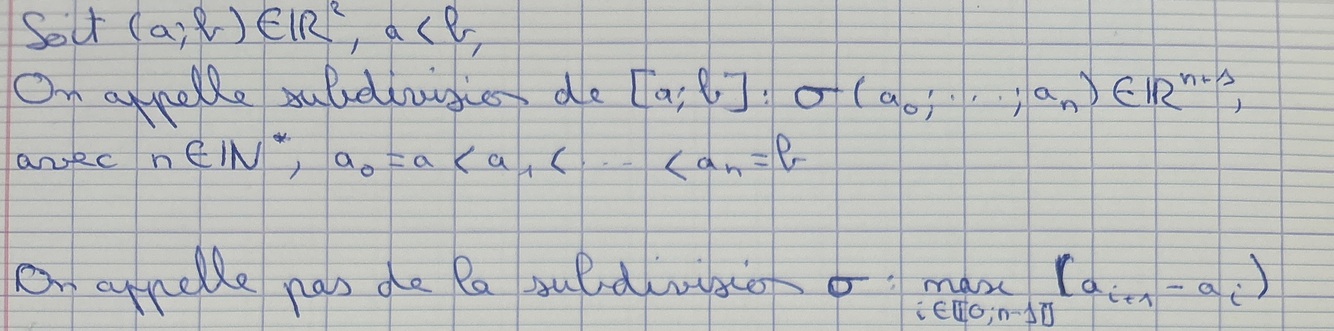 Soit (a;b) ∈ ℝ², a < b,
On appelle subdivision de [a;b] : σ(a₀; ... ; aₙ) ∈ ℝⁿ⁺¹,
avec n ∈ ℕ*, a₀ = a < a₁ < ... < aₙ = b
On appelle pas de la subdivision σ : max (aᵢ₊₁ - aᵢ)
i ∈ ⟦0;n-1⟧